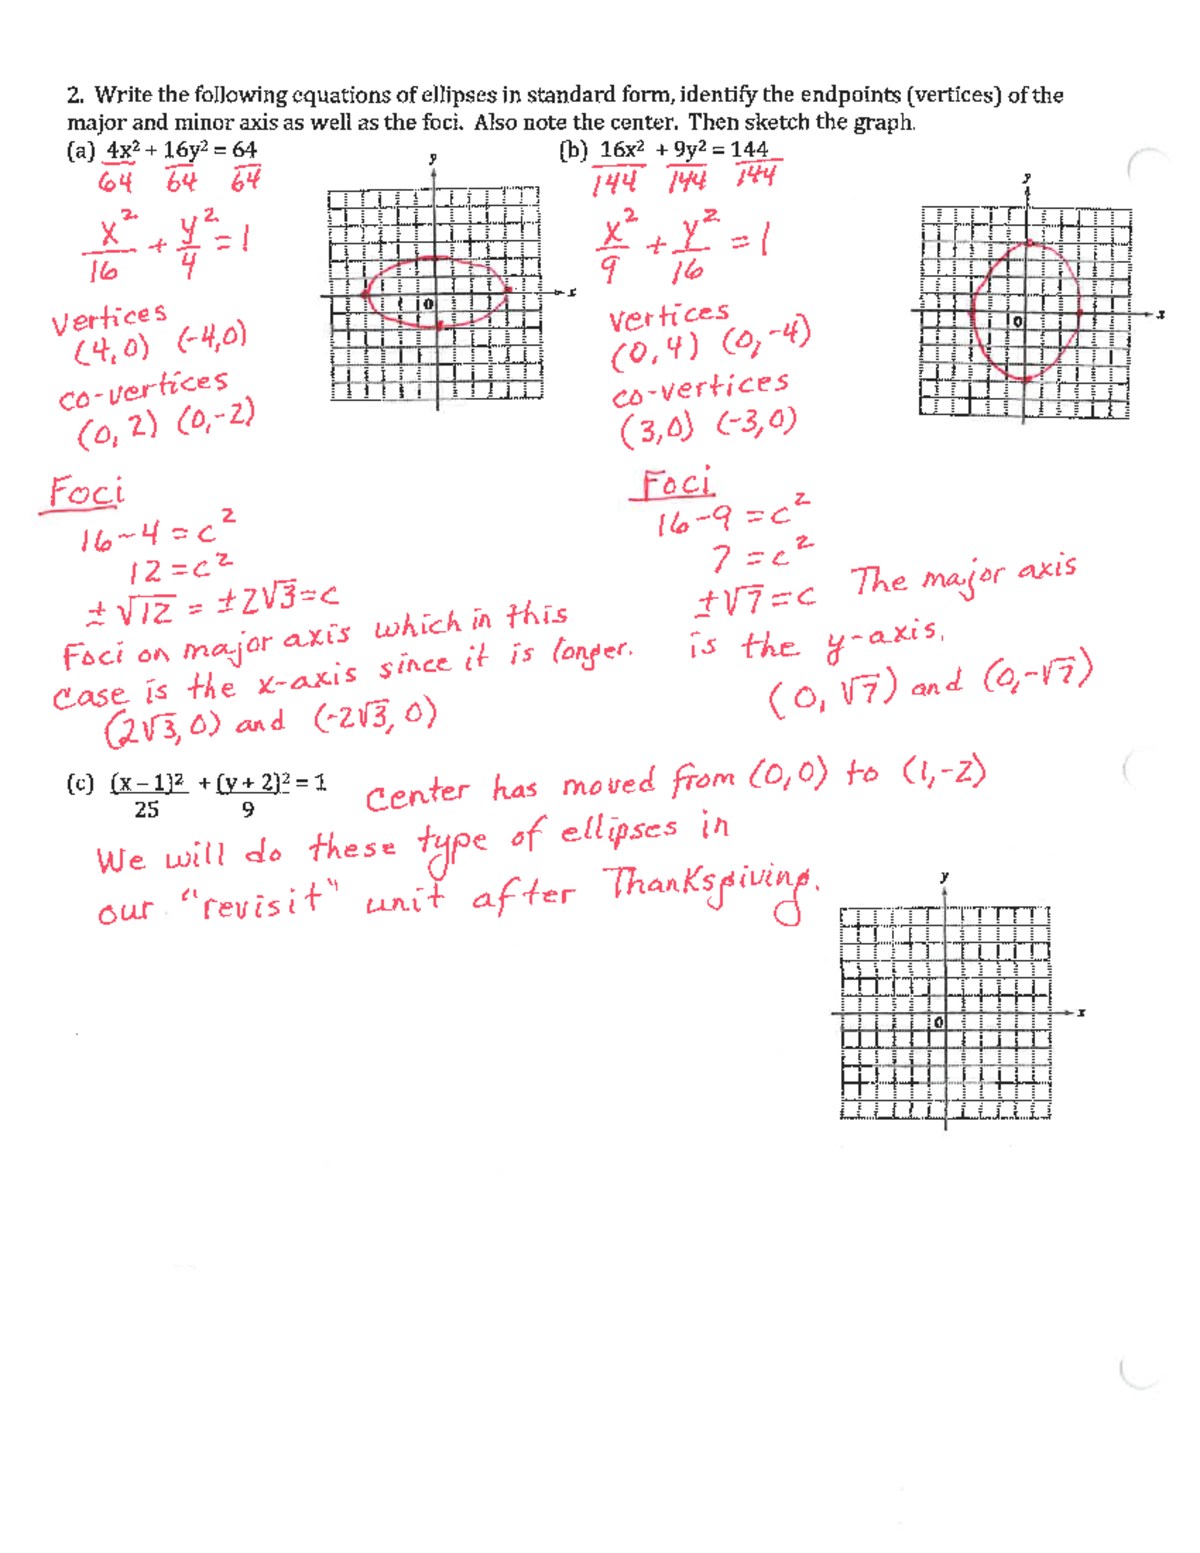 2. Write the following equations of ellipses in standard form, identify the endpoints (vertices) of the
major and minor axis as well as the foci. Also note the center. Then sketch the graph.
(a) 4x² + 16y² = 64
64 64 64
x²/16 + y²/4 = 1
Vertices
(4,0) (-4,0)
co-vertices
(0,2) (0,-2)
Foci
16-4=c²
12=c²
±√12 = ±2√3=c
Foci on major axis which in this
case is the x-axis since it is longer.
(2√3,0) and (-2√3,0)
y
x
0
(b) 16x² + 9y² = 144
144 144 144
x²/9 + y²/16 = 1
vertices
(0,4) (0,-4)
co-vertices
(3,0) (-3,0)
Foci
16-9=c²
7=c²
±√7=c The major axis
is the y-axis.
(0,√7) and (0,-√7)
y
x
0
(c) (x – 1)² + (y + 2)² = 1
25 9
center has moved from (0,0) to (1,-2)
We will do these type of ellipses in
our "revisit" unit after Thanksgiving.
y
x
0